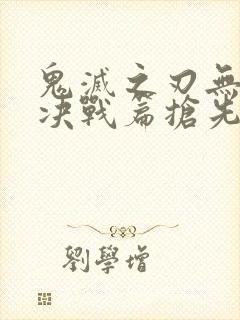 鬼滅之刃無
決戰篇搶先
劉學增